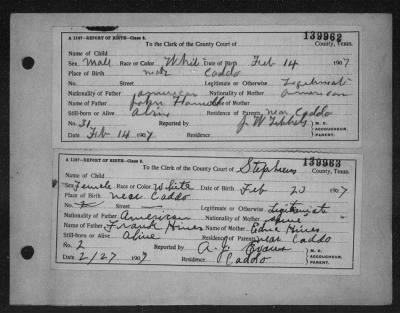 A 1167-REPORT OF BIRTH-Class 8. 139962
To the Clerk of the County Court of County, Texas.
Name of Child
Sex Male Race or Color White Date of Birth Feb 14 1907
Place of Birth near Caddo
No. Street Legitimate or Otherwise Legitimate
Nationality of Father American Nationality of Mother American
Name of Father John Name of Mother
Still-born or Alive Alive Residence of Parents near Caddo
No. 31 Reported by J. W. M. D.
ACCOUCHEUR.
Date Feb 14 1907 Residence PARENT.
A 1167-REPORT OF BIRTH-Class 8. 139963
To the Clerk of the County Court of Stephens County, Texas.
Name of Child
Sex Female Race or Color White Date of Birth Feb 20 1907
Place of Birth near Caddo
No. Street Legitimate or Otherwise Legitimate
Nationality of Father American Nationality of Mother same
Name of Father Frank Hines Name of Mother Edna Hines
Still-born or Alive Alive Residence of Parents near Caddo
No. 2 Reported by A. J. Evans M. D.
ACCOUCHEUR.
2/27 1907 Residence Caddo PARENT.